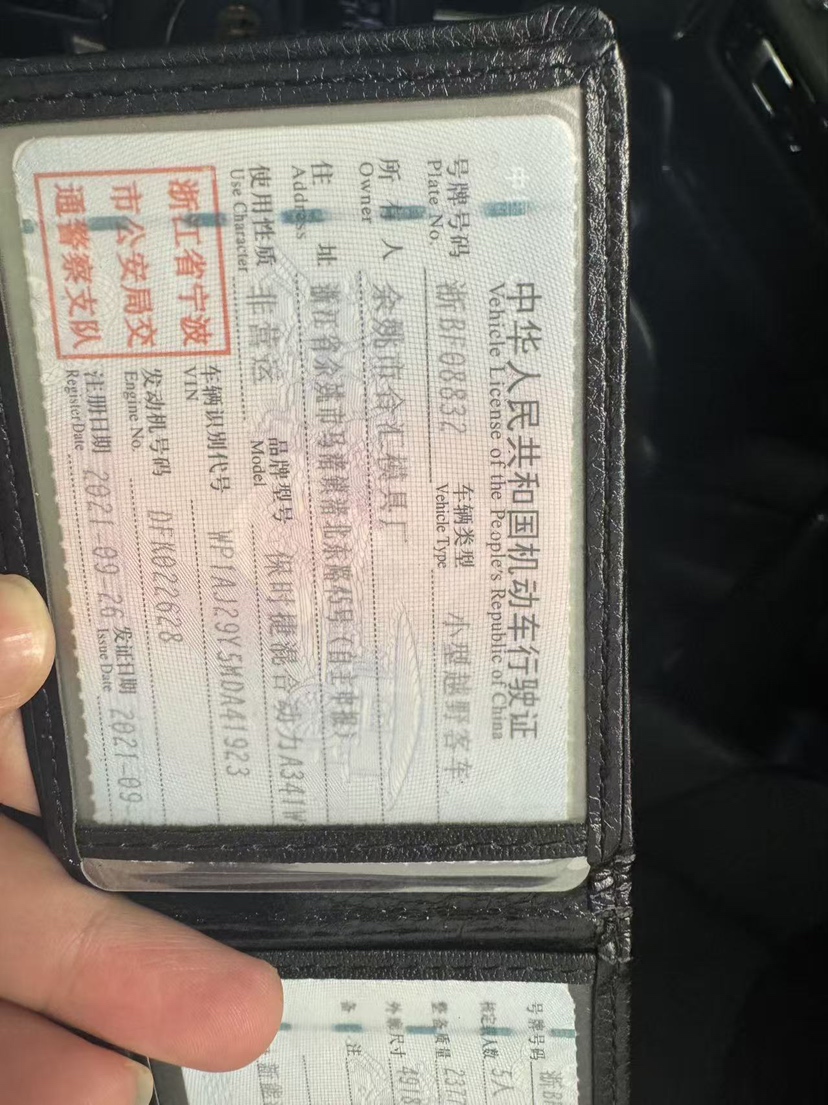 中华人民共和国机动车行驶证
Vehicle License of the People's Republic of China
号牌号码 浙BF08832 车辆类型 小型越野客车
Plate No. Vehicle Type
所有人 余姚市合汇模具厂
Owner
住址 浙江省余姚市马渚镇渚北东路45号(自主申报)
Address
使用性质 非营运 品牌型号 保时捷混合动力A341W
Use Character Model
浙江省宁波
市公安局交
通警察支队
车辆识别代号 WP1AJ29Y5MDA41923
VIN
发动机号码 DFK022628
Engine No.
注册日期 2021-09-26 发证日期 2021-09-
Register Date Issue Date
号牌号码 浙BF
核定载人数 5人
整备质量 2377
外廓尺寸 4918
备注